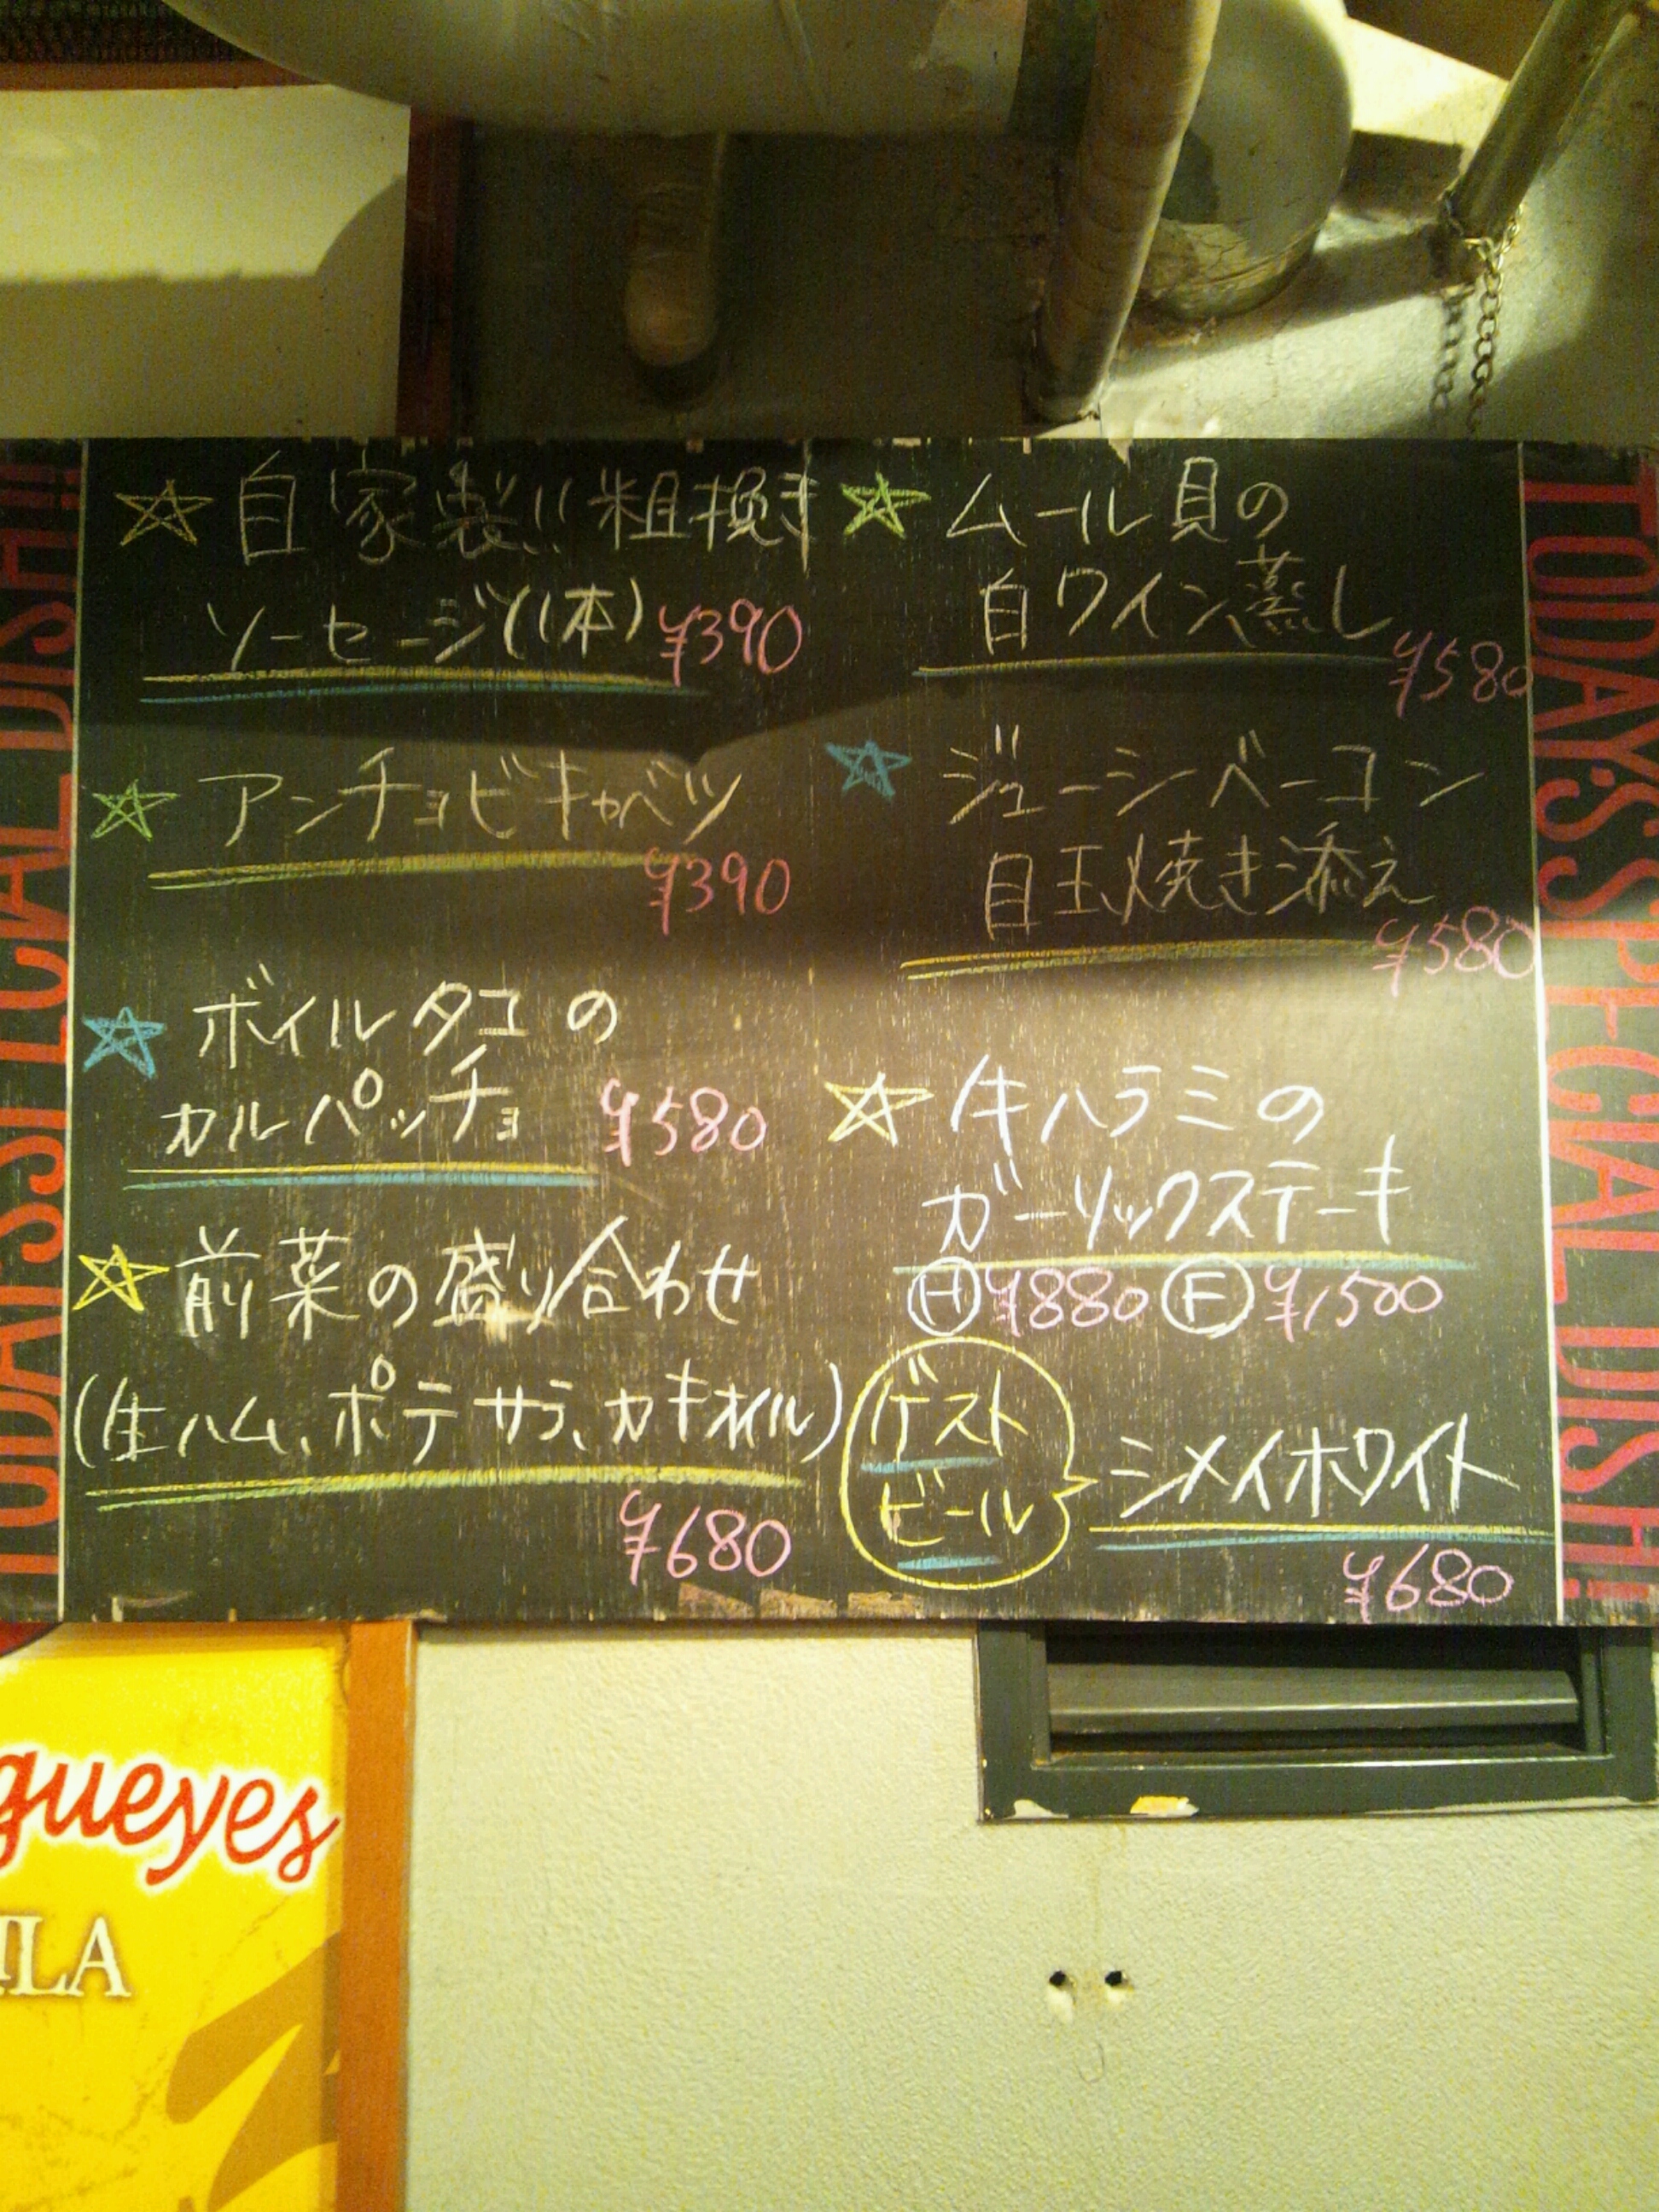 ☆自家製!!粗挽き
ソーセージ(1本) ¥390
☆アンチョビキャベツ
¥390
☆ボイルタコの
カルパッチョ ¥580
☆前菜の盛り合わせ
(生ハム、ポテサラ、カキオイル)
¥680
☆ムール貝の
白ワイン蒸し
¥580
☆ジューシーベーコン
目玉焼き添え
¥580
☆牛ハラミの
ガーリックステーキ
Ⓗ¥880 Ⓕ¥1,500
ゲスト
ビール
シメイホワイト
¥680
TODAY'S SPECIAL DISH!!
TODAY'S SPECIAL DISH!!
gueyes
ILA